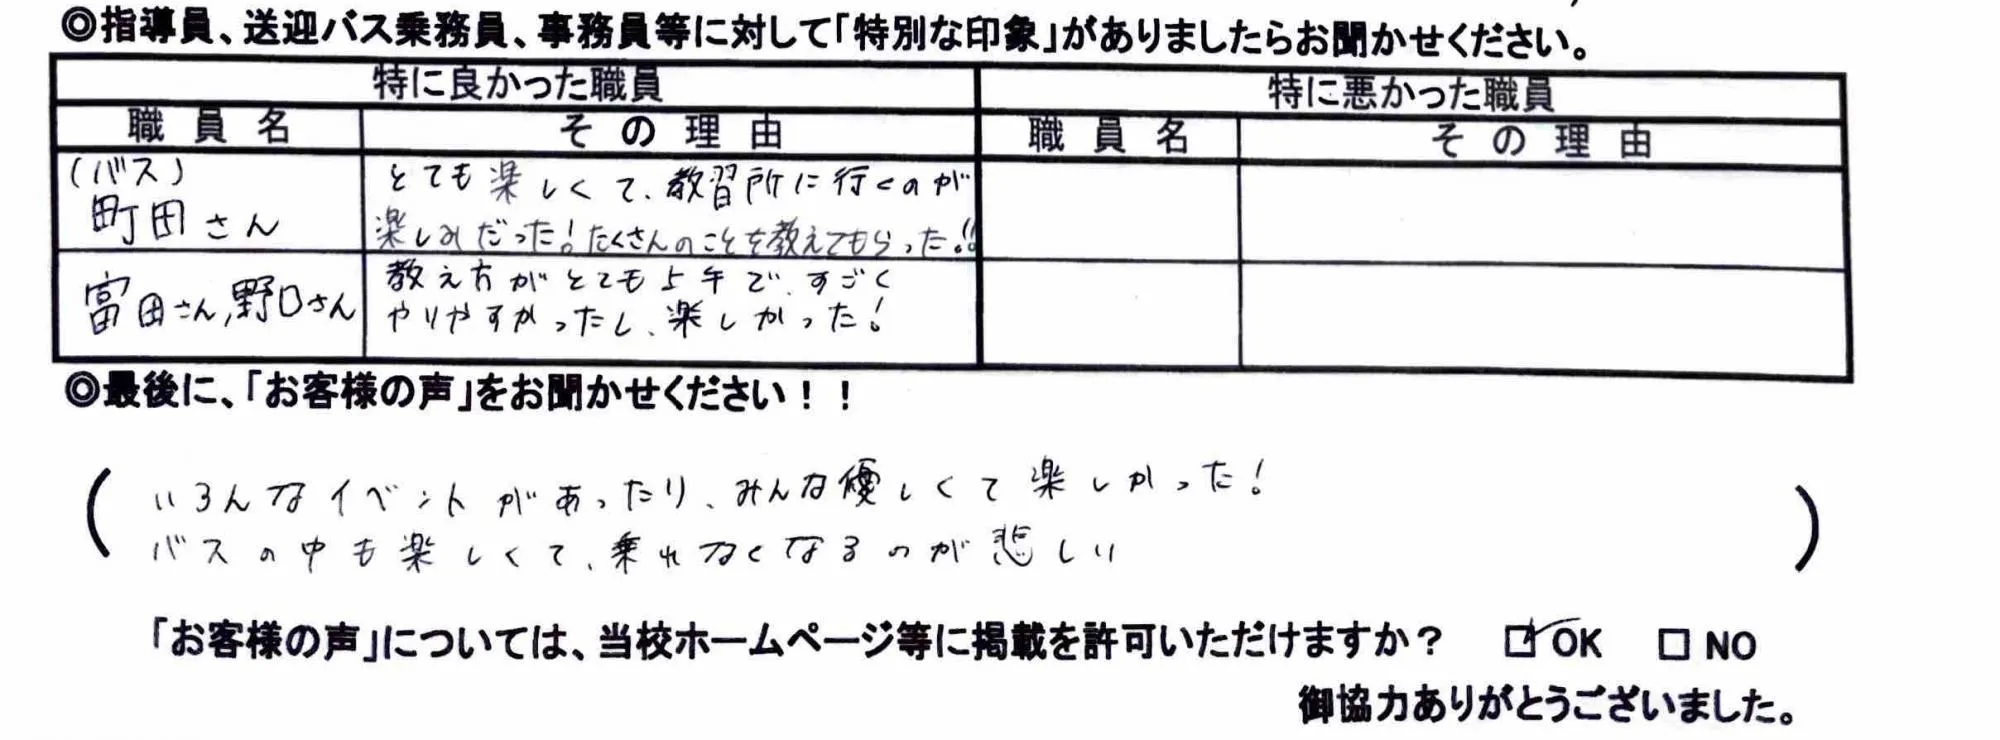 ◎指導員、送迎バス乗務員、事務員等に対して「特別な印象」がありましたらお聞かせください。
特に良かった職員
特に悪かった職員
職員名
その理由
職員名
その理由
(バス)
町田さん
とても楽しくて、教習所に行くのが
楽しみだった!たくさんのことを教えてもらった!!
富田さん,野口さん
教え方がとても上手で、すごく
やりやすかったし、楽しかった!
◎最後に、「お客様の声」をお聞かせください!!
(いろんなイベントがあったり、みんな優しくて楽しかった!
バスの中も楽しくて、乗れなくなるのが悲しい)
「お客様の声」については、当校ホームページ等に掲載を許可いただけますか? ☑OK □NO
御協力ありがとうございました。